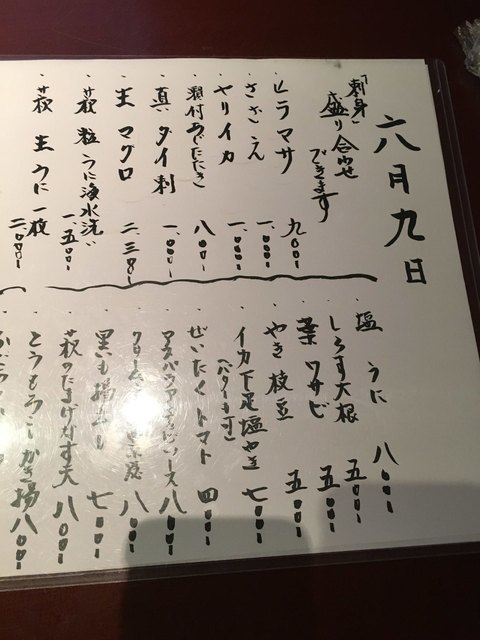 六月九日
「刺身」
盛り合わせ
できます
・ヒラマサ 九〇〇-
・さざえ 一、〇〇〇-
・ヤリイカ 一、〇〇〇-
・殻付 八〇〇-
・真ダイ刺 一、〇〇〇-
・生マグロ 二、三〇〇-
・萩 粒うに海水洗い 一、五〇〇-
・萩 生うに一枚
・塩うに 八〇〇-
・しらす大根 五〇〇-
・葉ワサビ 五〇〇-
・やき枝豆 五〇〇-
・イカ下足塩やき
(バターも可) 七〇〇-
・ぜいたくトマト 四〇〇-
ソース 八〇〇-
クリーム 八〇〇-
黒いも揚出し 七〇〇-
萩の 八〇〇-
とうもろこしかき揚 八〇〇-